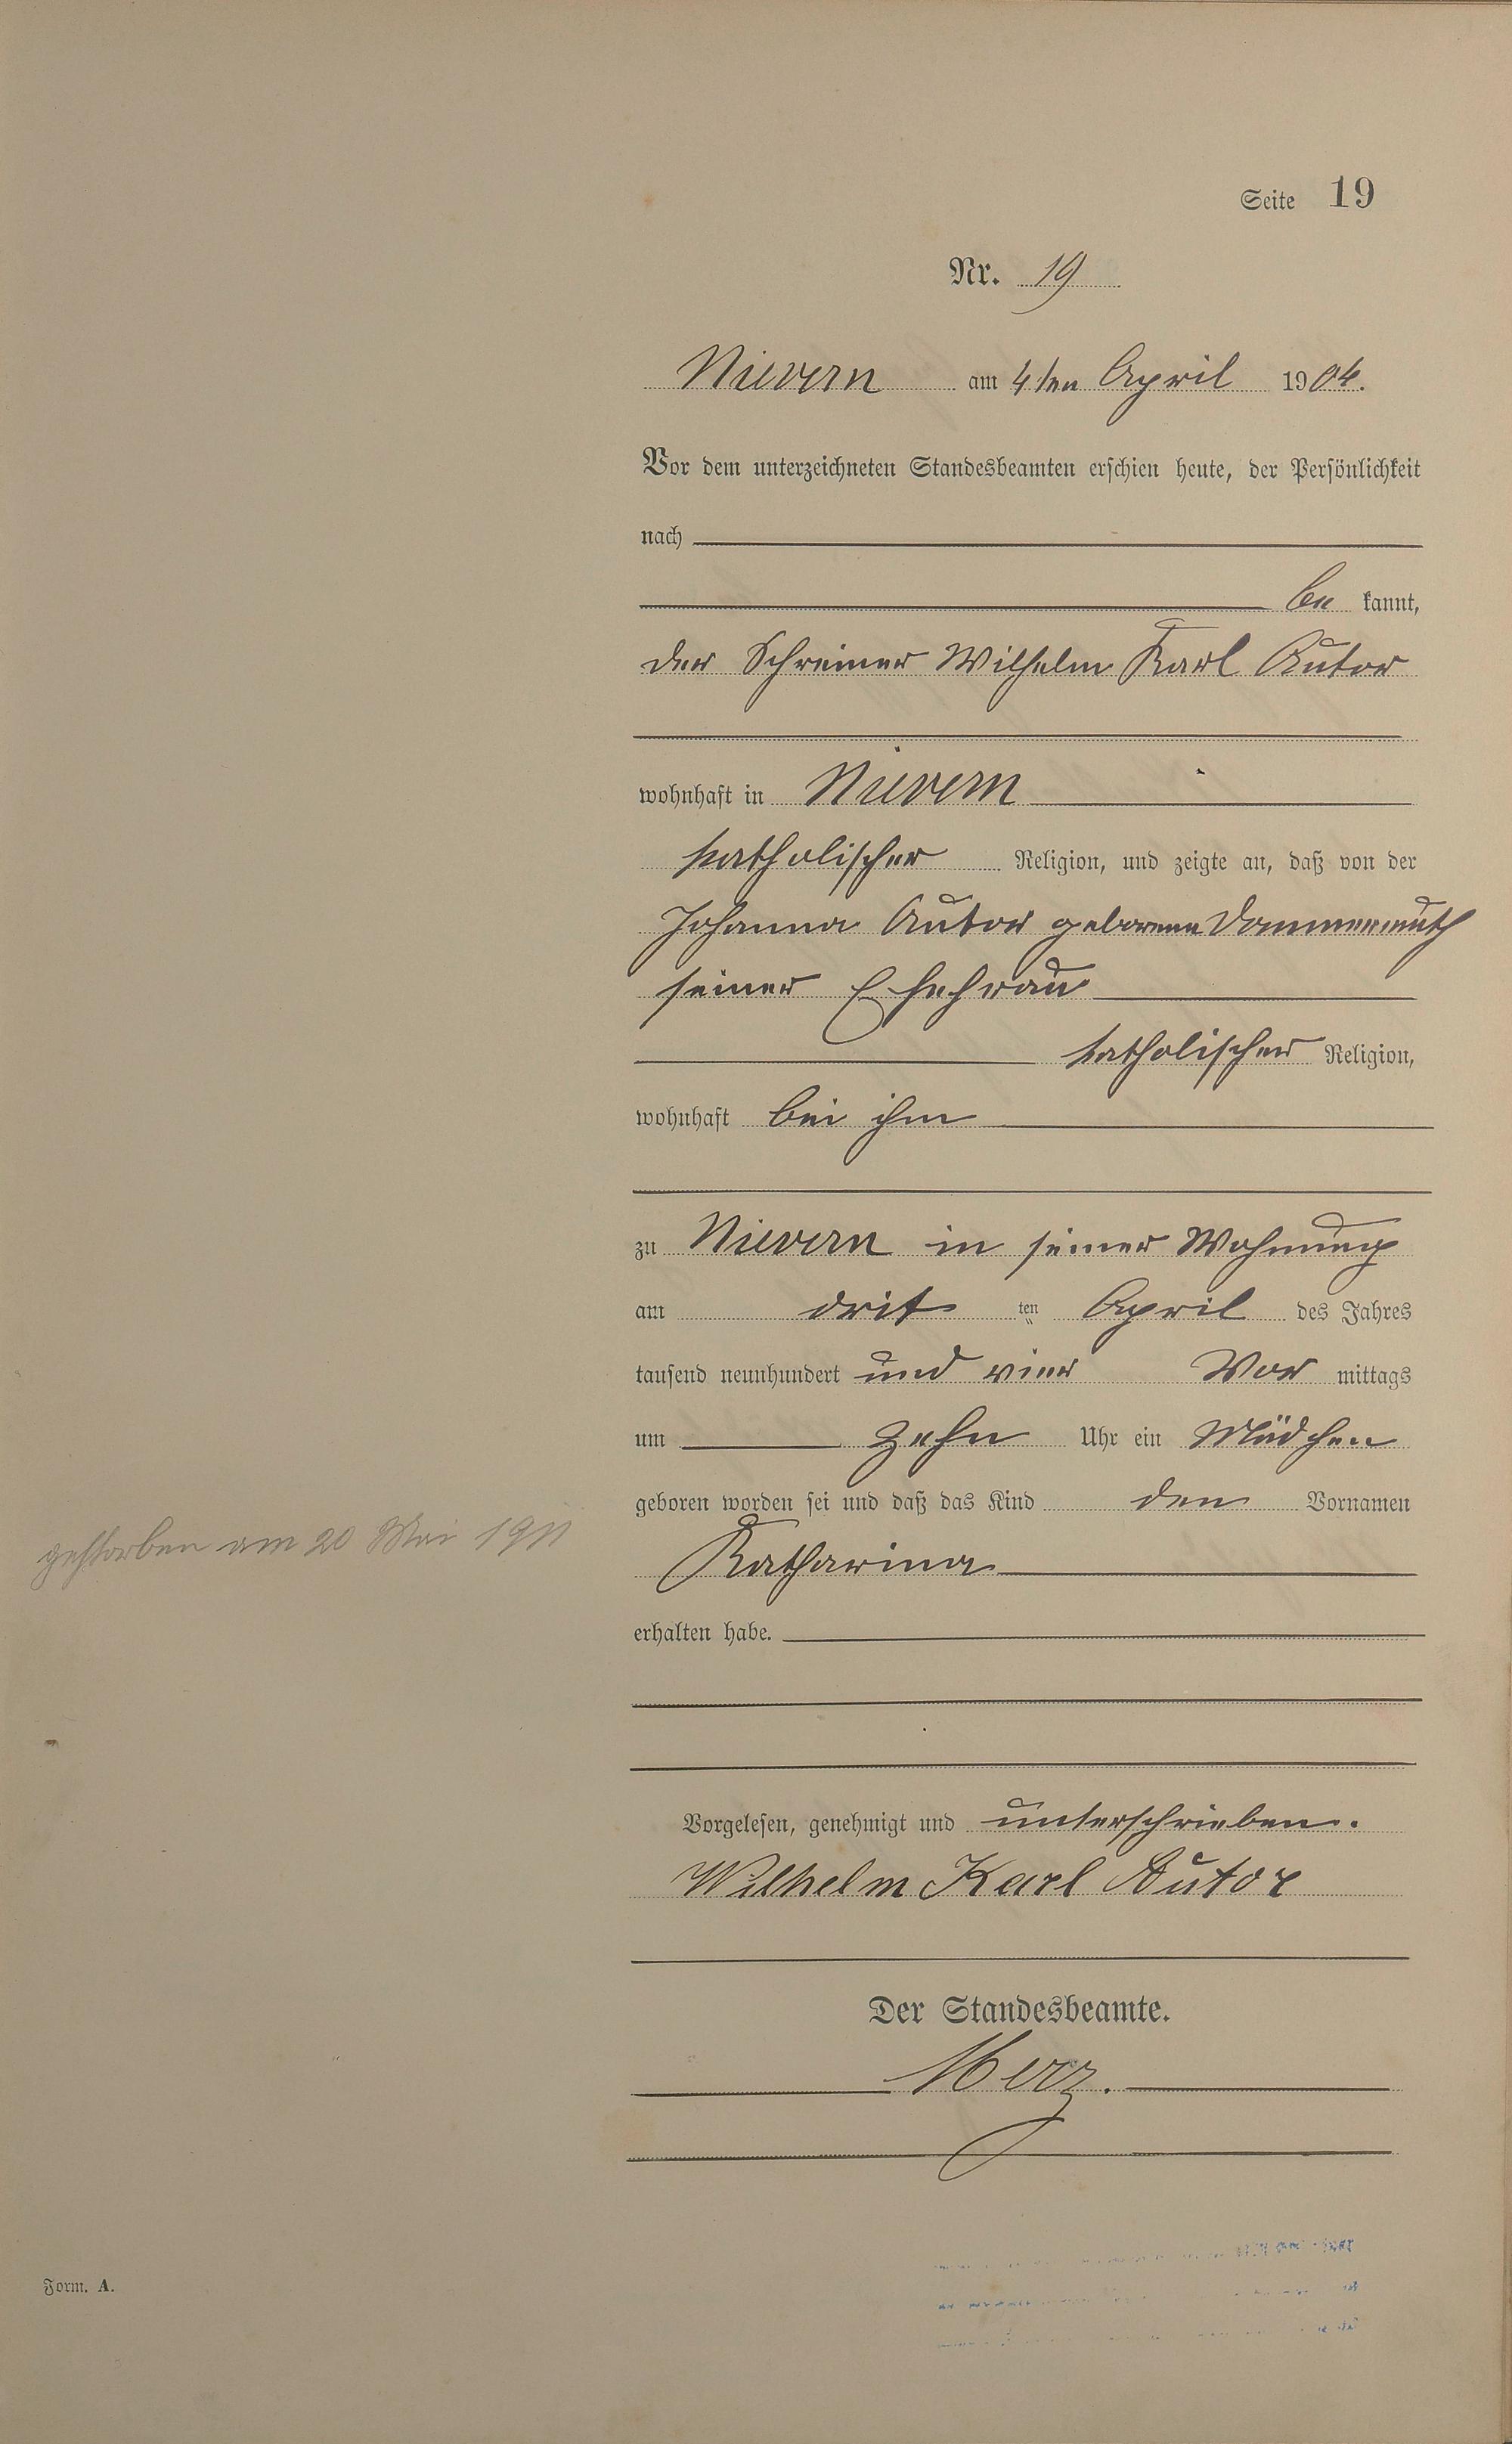 Seite 19
Nr. 19
Nievern am 4ten April 1904.
Vor dem unterzeichneten Standesbeamten erschien heute, der Persönlichkeit
nach
be kannt,
der Schreiner Wilhelm Karl Autor
wohnhaft in Nievern
katholischer Religion, und zeigte an, daß von der
Johanna Autor geborene Dommermuth
seiner Ehefrau
katholischer Religion,
wohnhaft bei ihm
zu Nievern in seiner Wohnung
am drit ten April des Jahres
tausend neunhundert und vier Vor mittags
um zehn Uhr ein Mädchen
geboren worden sei und daß das Kind den Vornamen
gestorben am 20 Mai 1911
Katharina
erhalten habe.
Vorgelesen, genehmigt und unterschrieben.
Wilhelm Karl Autor
Der Standesbeamte.
Merz.
Form. A.